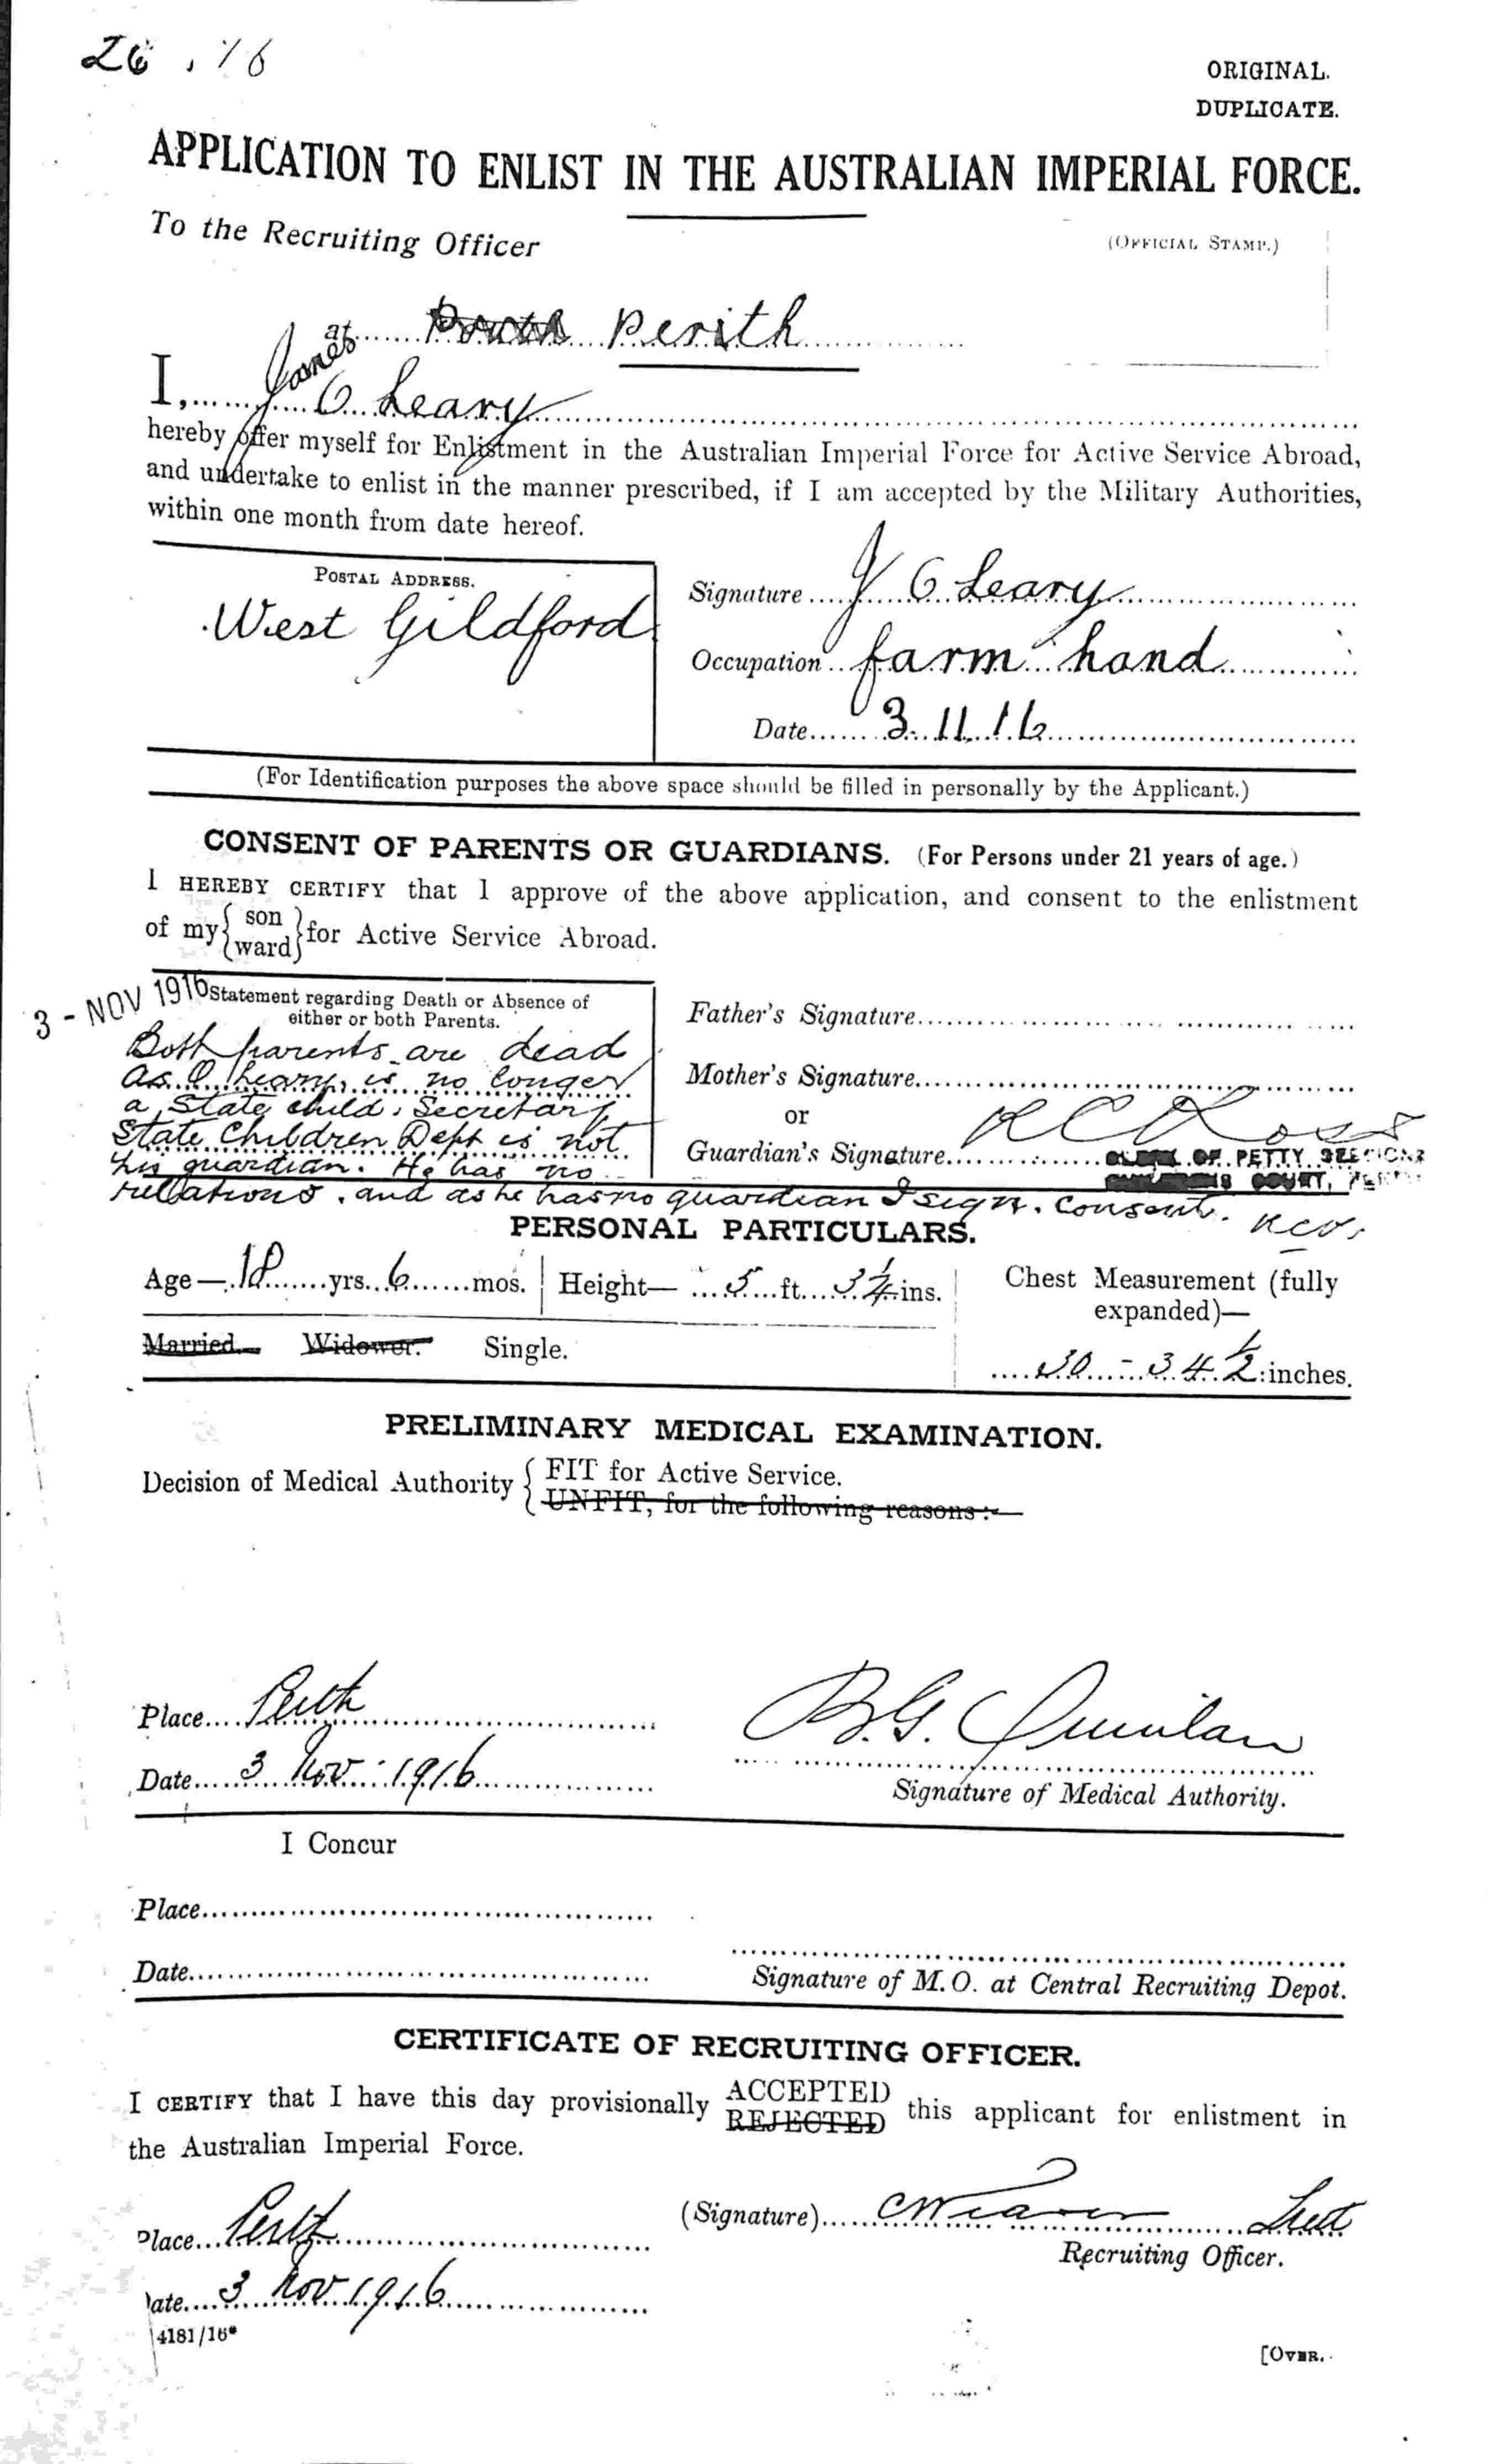 26 . 16
ORIGINAL.
DUPLICATE.
APPLICATION TO ENLIST IN THE AUSTRALIAN IMPERIAL FORCE.
To the Recruiting Officer
(OFFICIAL STAMP.)
at Perith
James
I, J O Leary
hereby offer myself for Enlistment in the Australian Imperial Force for Active Service Abroad,
and undertake to enlist in the manner prescribed, if I am accepted by the Military Authorities,
within one month from date hereof.
POSTAL ADDRESS.
West Gildford
Signature J O Leary
Occupation farm hand
Date 3.11.16
(For Identification purposes the above space should be filled in personally by the Applicant.)
CONSENT OF PARENTS OR GUARDIANS. (For Persons under 21 years of age.)
I HEREBY CERTIFY that I approve of the above application, and consent to the enlistment
of my { son ward } for Active Service Abroad.
3 - NOV 1916
Statement regarding Death or Absence of
either or both Parents.
Both parents are dead
as O'Leary is no longer
a State child. Secretary
State Children Dept is not
his guardian. He has no
relations. and as he has no guardian I sign. Consent.
Father's Signature
Mother's Signature
or
Guardian's Signature
CLERK OF PETTY SESSIONS
CHILDRENS COURT, PERTH
PERSONAL PARTICULARS.
Age—18 yrs. 6 mos.
Height— 5 ft. 3 1/4 ins.
Chest Measurement (fully
expanded)—
30 - 34 1/2 inches.
Married. Widower. Single.
PRELIMINARY MEDICAL EXAMINATION.
Decision of Medical Authority { FIT for Active Service.
UNFIT, for the following reasons :—
Place Perth
Date 3 Nov 1916
B.G. Quinlan
Signature of Medical Authority.
I Concur
Place
Date
Signature of M.O. at Central Recruiting Depot.
CERTIFICATE OF RECRUITING OFFICER.
I CERTIFY that I have this day provisionally ACCEPTED REJECTED this applicant for enlistment in
the Australian Imperial Force.
Place Perth
(Signature) Lieut
Recruiting Officer.
Date 3 Nov 1916
4181/16*
[OVER.